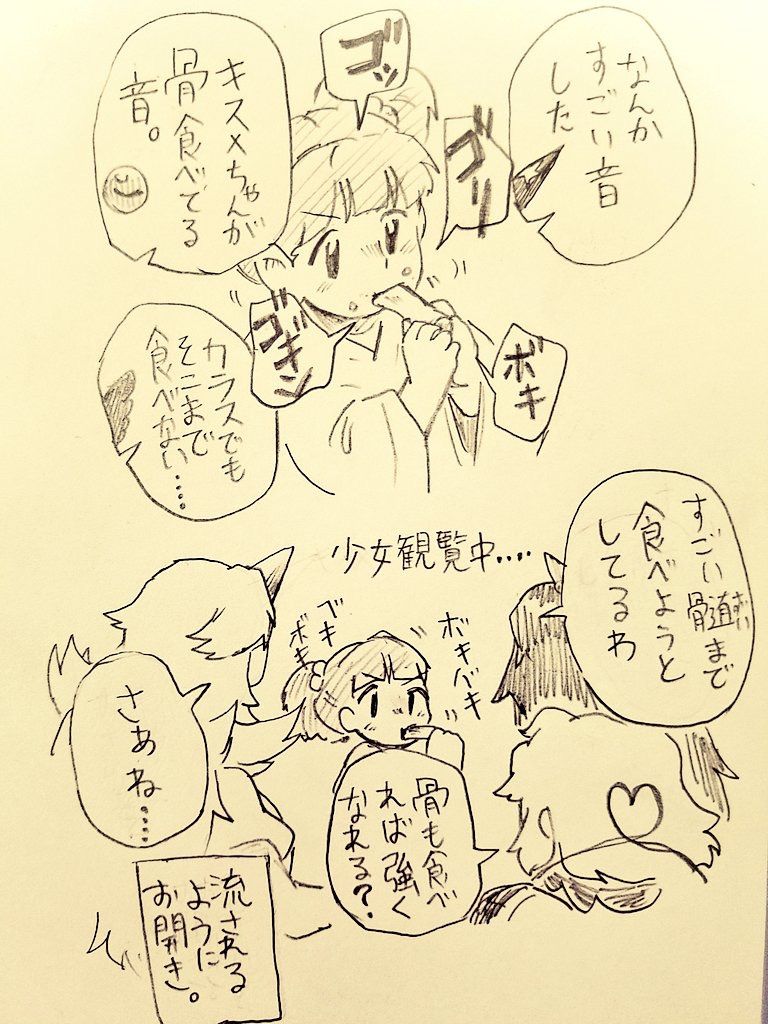 なんか
すごい音
した
ゴッ
ゴリ
キスメちゃんが
骨食べてる
音。
ゴギン
ボキ
カラスでも
そこまで
食べない……
少女観覧中....
すごい髄まで
ずい
食べようと
してるわ
ボキバキ
ベキ
ボキ
さあね……
骨も食べ
れば強く
なれる?
流される
ように
お開き。